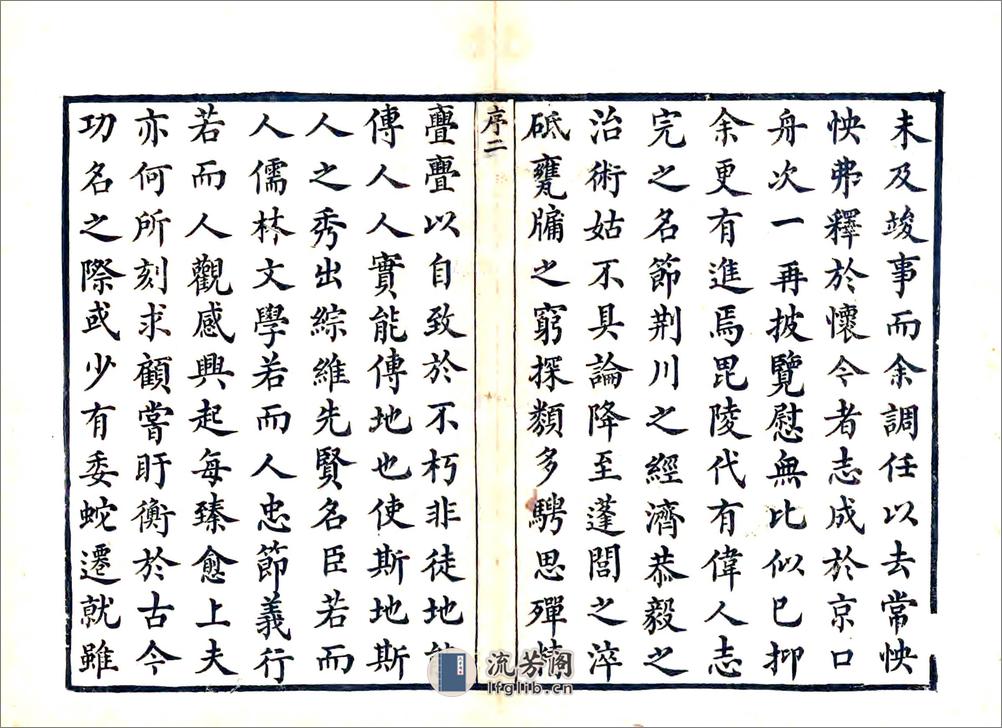 未及竣事而余調任以去常怏
怏弗釋於懷今者志成於京口
舟次一再披覽慰無比似已抑
余更有進焉毘陵代有偉人志
完之名節荆川之經濟恭毅之
治術姑不具論降至蓬閭之淬
砥甕牖之窮探纇多騁思殫精
序二
亹亹以自致於不朽非徒地
傳人人實能傳地也使斯地斯
人之秀出綜維先賢名臣若而
人儒林文學若而人忠節義行
若而人觀感興起每臻愈上夫
亦何所刻求顧嘗盱衡於古今
功名之際或少有委蛇遷就雖
流芳阁
lfglib.cn